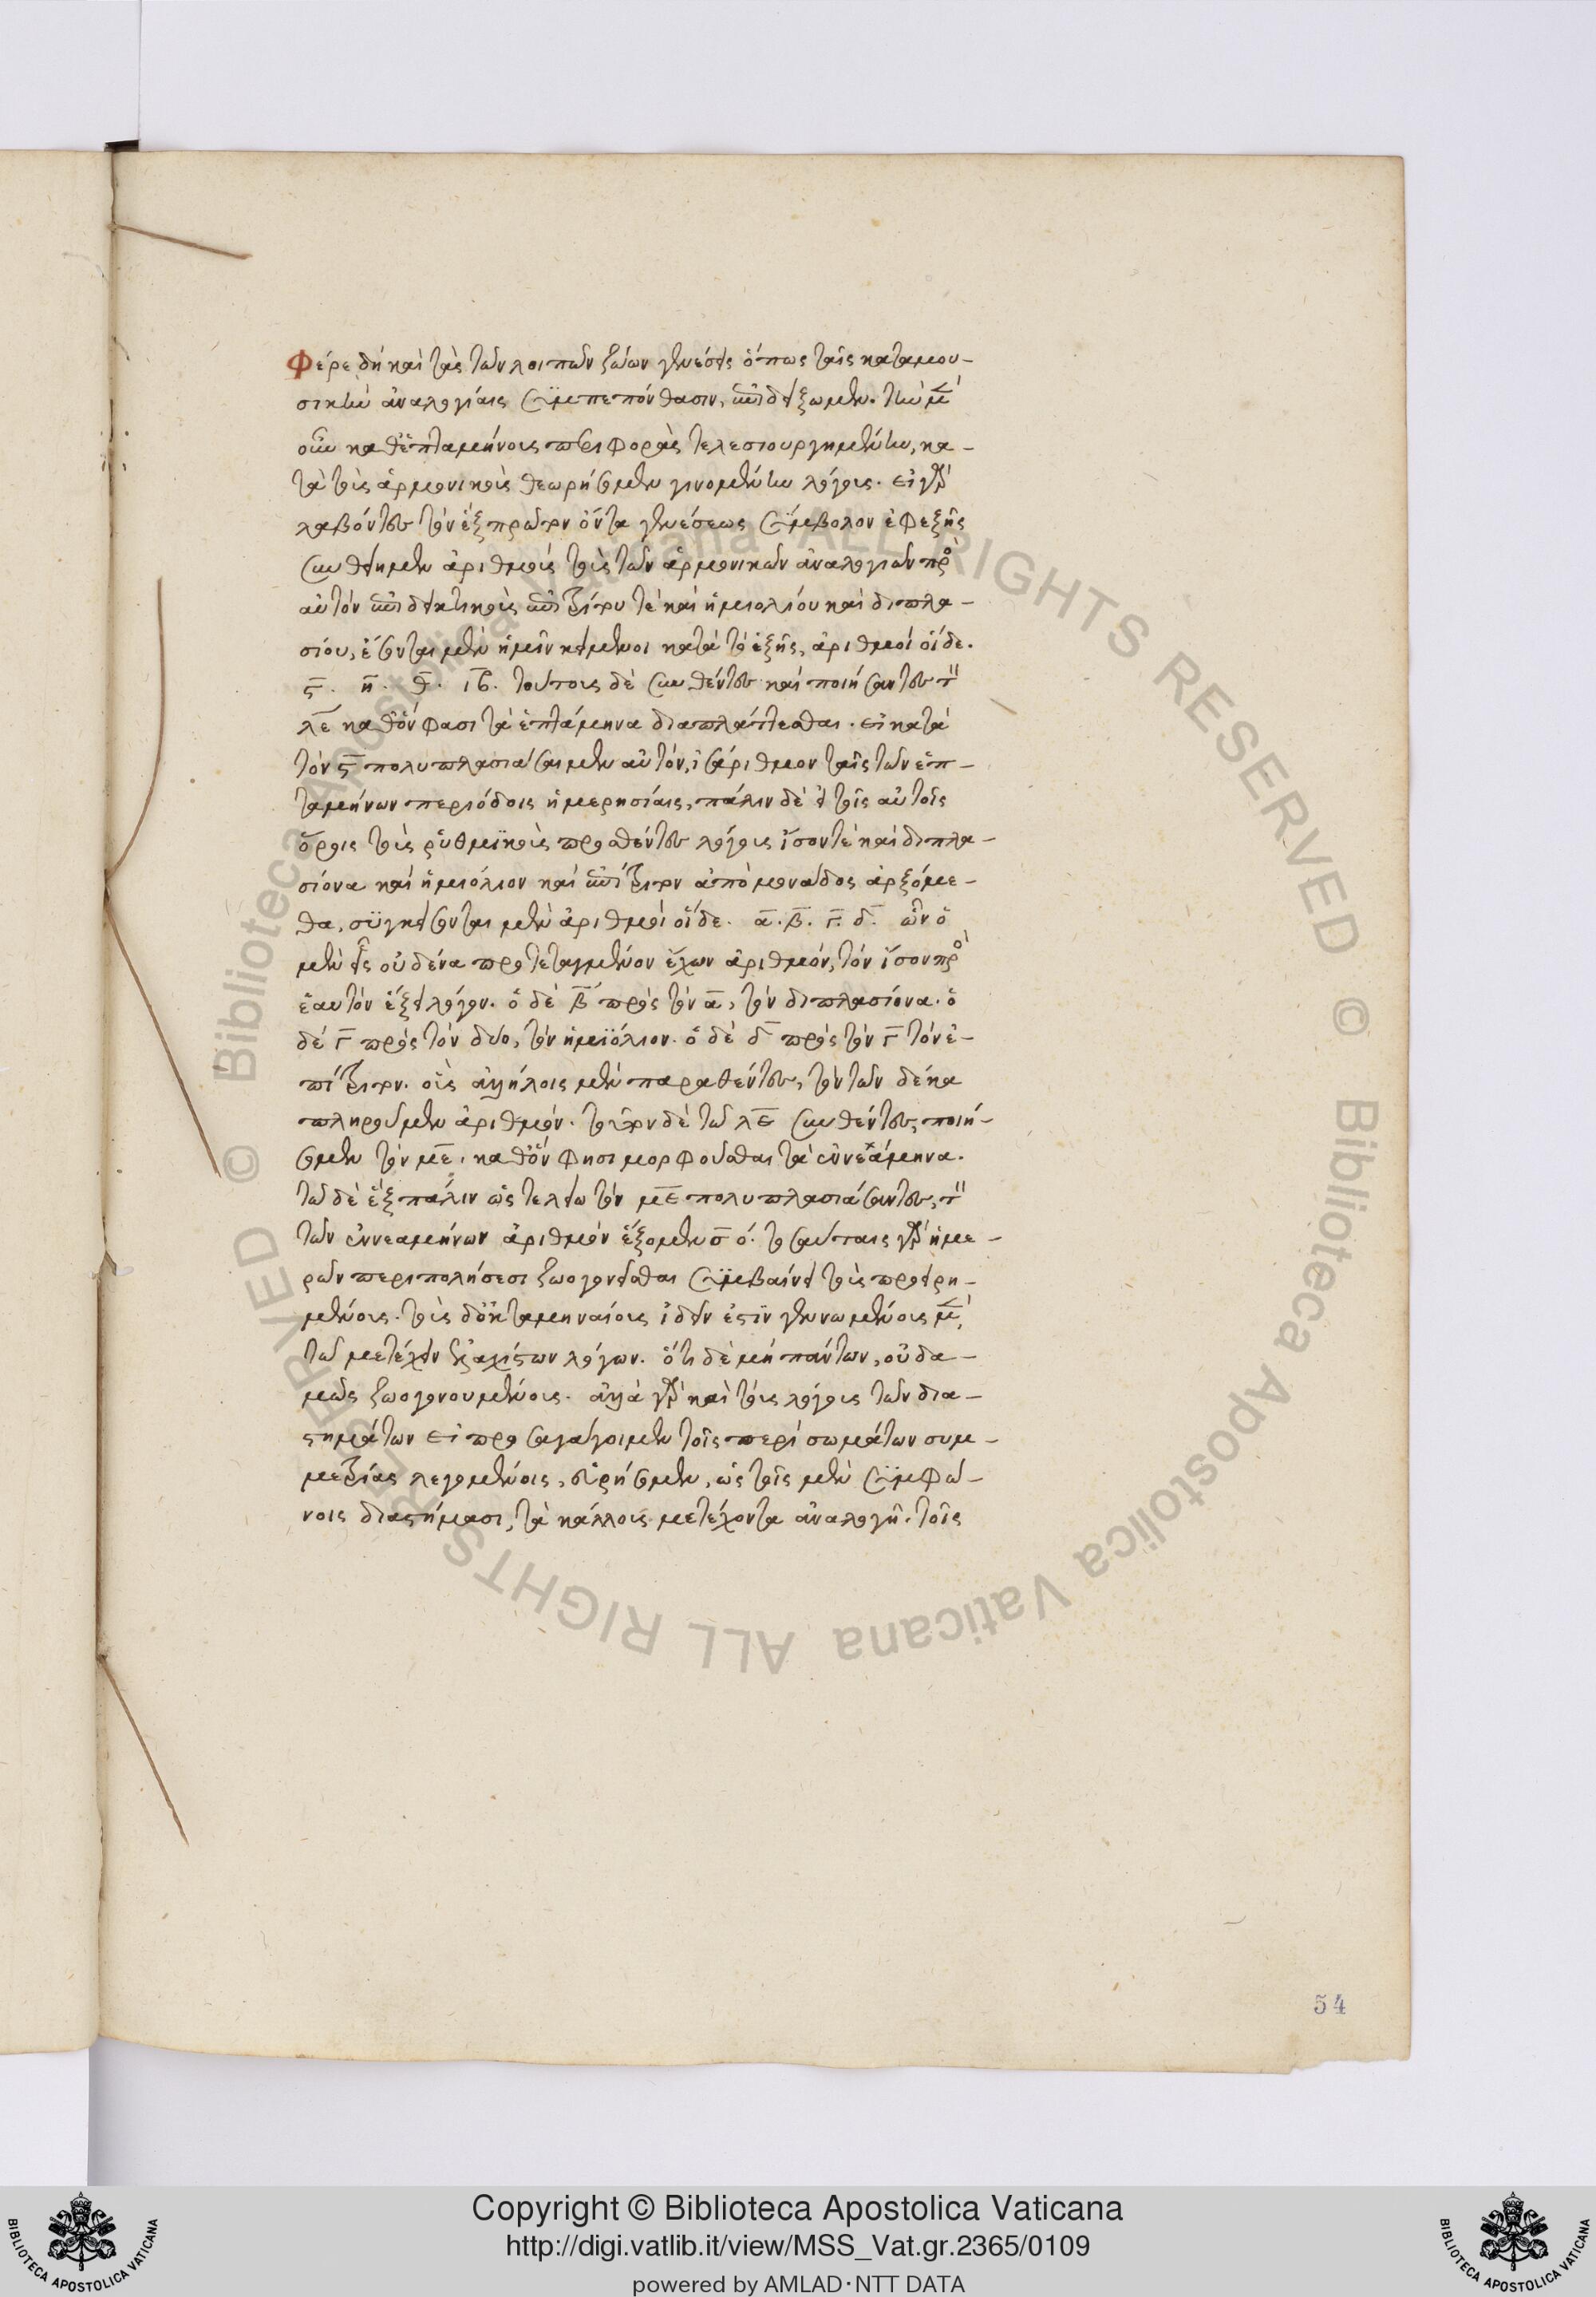 Φέρε δὴ καὶ τὰς τῶν λοιπῶν ζώων γενέσεις ὅπως ταῖς κατὰ μου-
σικὴν ἀναλογίαις συμπεπόνθασιν, ἐπιδείξωμεν. τὴν μ
οὖν καθ' ἑπταμήνοις περιφορὰς τελεσιουργημένην, κα-
τὰ τοὺς ἁρμονικοὺς θεωρήσομεν γινομένην λόγους. εἰ γὰρ
λαβόντες τὸν ἓξ πρῶτον ὄντα γενέσεως σύμβολον ἐφεξῆς
συνθείημεν ἀριθμοὺς τοὺς τῶν ἁρμονικῶν ἀναλογιῶν πρὸ
αὐτὸν ἐπιδεικτικοὺς ἐπιτρίτου τὲ καὶ ἡμιολίου καὶ διπλα-
σίου, ἔσονται μὲν ἡμῖν κείμενοι κατὰ τὸ ἑξῆς, ἀριθμοὶ οἵδε.
ς. η. θ. ιβ. τούτους δὲ συνθέντες καὶ ποιήσαντες τ
λε καθ' ὅν φασι τὰ ἑπτάμηνα διαπλάττεσθαι. εἰ κατὰ
τὸν ς πολυπλασιάσαιμεν αὐτὸν, ἰσάριθμον ταῖς τῶν ἑπ-
ταμήνων περιόδοις ἡμερησίαις, πάλιν δὲ εἰ τοῖς αὐτοῖς
ὅροις τοὺς ῥυθμικοὺς προσθέντες λόγους ἴσον τὲ καὶ διπλα-
σίονα καὶ ἡμιόλιον καὶ ἐπίτριτον ἀπὸ μονάδος ἀρξόμε-
θα, συγκείσονται μὲν ἀριθμοὶ οἵδε. α. β. γ. δ. ὧν ὁ
μὲν εἷς οὐδένα προτεταγμένον ἔχων ἀριθμὸν, τὸν ἴσον πρὸ
ἑαυτὸν ἕξει λόγον. ὁ δὲ β πρὸς τὸν α, τὸν διπλασίονα. ὁ
δὲ γ πρὸς τὸν δύο, τὸν ἡμιόλιον. ὁ δὲ δ πρὸς τὸν γ τὸν ἐ-
πίτριτον. οὓς ἀλλήλοις μὲν παραθέντες, τὸν τῶν δέκα
πληροῦμεν ἀριθμόν. τοῦτον δὲ τῷ λε συνθέντες, ποιή-
σομεν τὸν με, καθ' ὅν φησι μορφοῦσθαι τὰ ἐννεάμηνα.
τῷ δὲ ἓξ πάλιν ὡς τελείῳ τὸν με πολυπλασιάσαντες, τ
τῶν ἐννεαμήνων ἀριθμὸν ἕξομεν σ ο. τοσαύταις γὰρ ἡμε-
ρῶν περιπολήσεσι ζωογονεῖσθαι συμβαίνει τοὺς προειρη-
μένους. τοὺς δ' ὀκταμηναίους ἰδεῖν ἐστὶν γεννωμένους μ,
τῷ μετέχειν ἐλαχίστων λόγων. ὅτι δὲ μὴ πάντων, οὐδα-
μῶς ζωογονουμένους. ἀλλὰ γὰρ καὶ τοὺς λόγους τῶν δια-
στημάτων εἰ προσαγάγοιμεν τοῖς περὶ σωμάτων συμ-
μετρίας λεγομένοις, εὑρήσομεν, ὡς τοῖς μὲν συμφώ-
νοις διαστήμασι, τὰ κάλλους μετέχοντα ἀναλογῆ. τοῖς
54
Copyright © Biblioteca Apostolica Vaticana
http://digi.vatlib.it/view/MSS_Vat.gr.2365/0109
powered by AMLAD·NTT DATA
BIBLIOTECA APOSTOLICA VATICANA
BIBLIOTECA APOSTOLICA VATICANA
© Biblioteca Apostolica Vaticana ALL RIGHTS RESERVED © Biblioteca Apostolica Vaticana ALL RIGHTS RESERVED